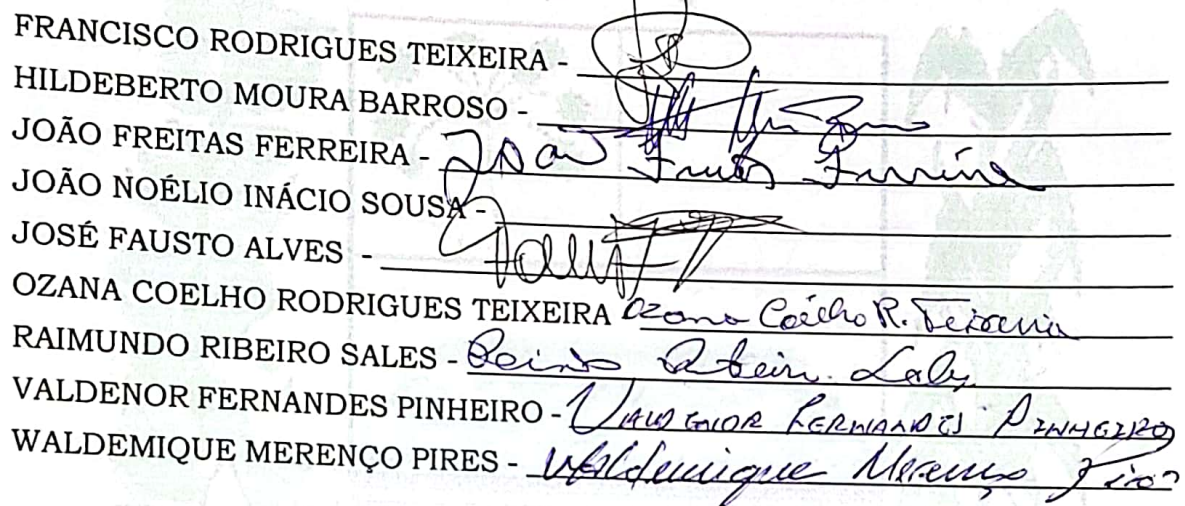 FRANCISCO RODRIGUES TEIXEIRA -
HILDEBERTO MOURA BARROSO -
JOÃO FREITAS FERREIRA - João Freitas Ferreira
JOÃO NOÉLIO INÁCIO SOUSA -
JOSÉ FAUSTO ALVES -
OZANA COELHO RODRIGUES TEIXEIRA Ozana Coêlho R. Teixeira
RAIMUNDO RIBEIRO SALES - Ribeiro Sales
VALDENOR FERNANDES PINHEIRO - VALDENOR FERNANDES PINHEIRO
WALDEMIQUE MERENÇO PIRES - Waldemique Merenço Pires